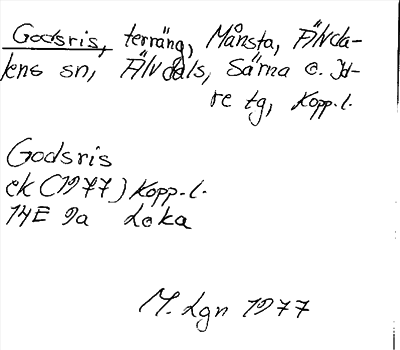 Godsris, terräng, Månsta, Älvda-
lens sn, Älvdals, Särna o. Id-
re tg, Kopp.l.
Godsris
ek (1977) Kopp.l.
14E 9a Loka
M. Lgn 1977